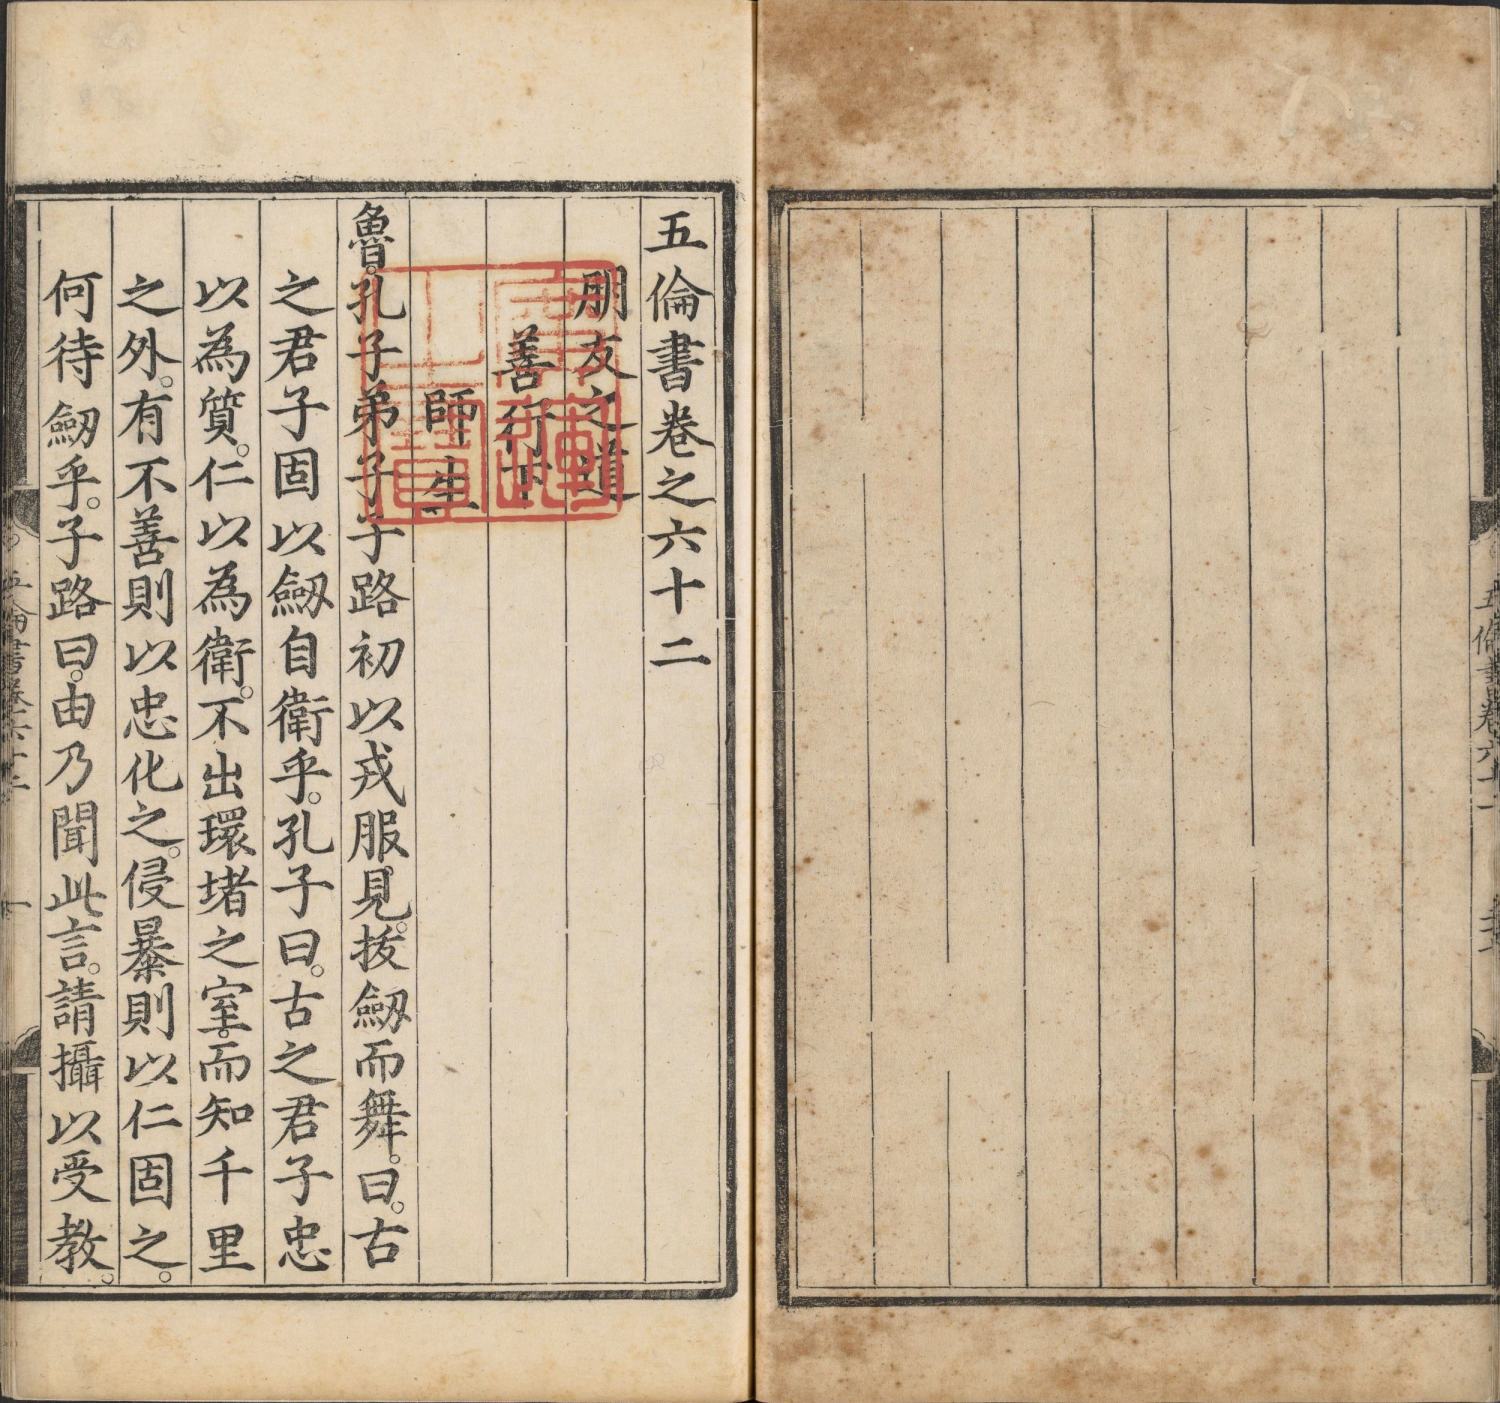 五倫書卷之六十二
朋友之道
善行下
師生
魯。孔子弟子子路初以戎服見。拔劒而舞。曰。古
之君子固以劒自衛乎。孔子曰。古之君子忠
以為質。仁以為衛。不出環堵之室。而知千里
之外。有不善則以忠化之。侵暴則以仁固之。
何待劒乎。子路曰。由乃聞此言。請攝以受教。
五倫書卷六十二
一